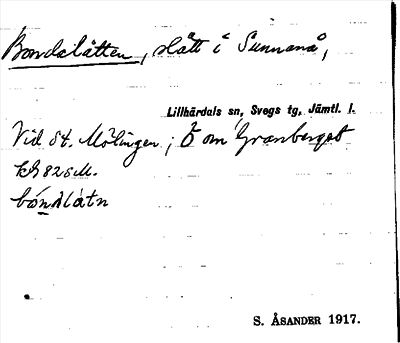 Bondslåtten, slått i Sunnanå,
Lillhärdals sn, Svegs tg, Jämtl. l.
Vid St. Mölingen; Ö om Granberget
kh 825 M.
bónslatn
S. ÅSANDER 1917.